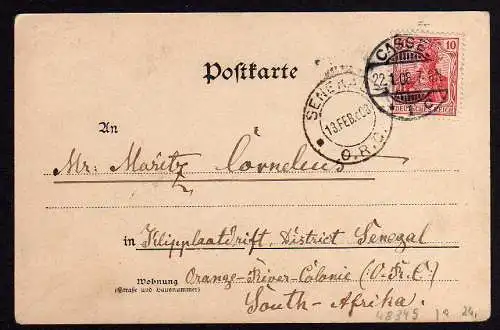 Postkarte
CASSEL
22.1.06.
10
DEUTSCHES REICH
SENEKAL
13 FEB 06
O.R.C.
An
Mr. Maritz Cornelius
in Klipplaatdrift, District Senegal
Wohnung Orange-River-Colonie (O.R.C.)
(Straße und Hausnummer)
South-Afrika.
48345